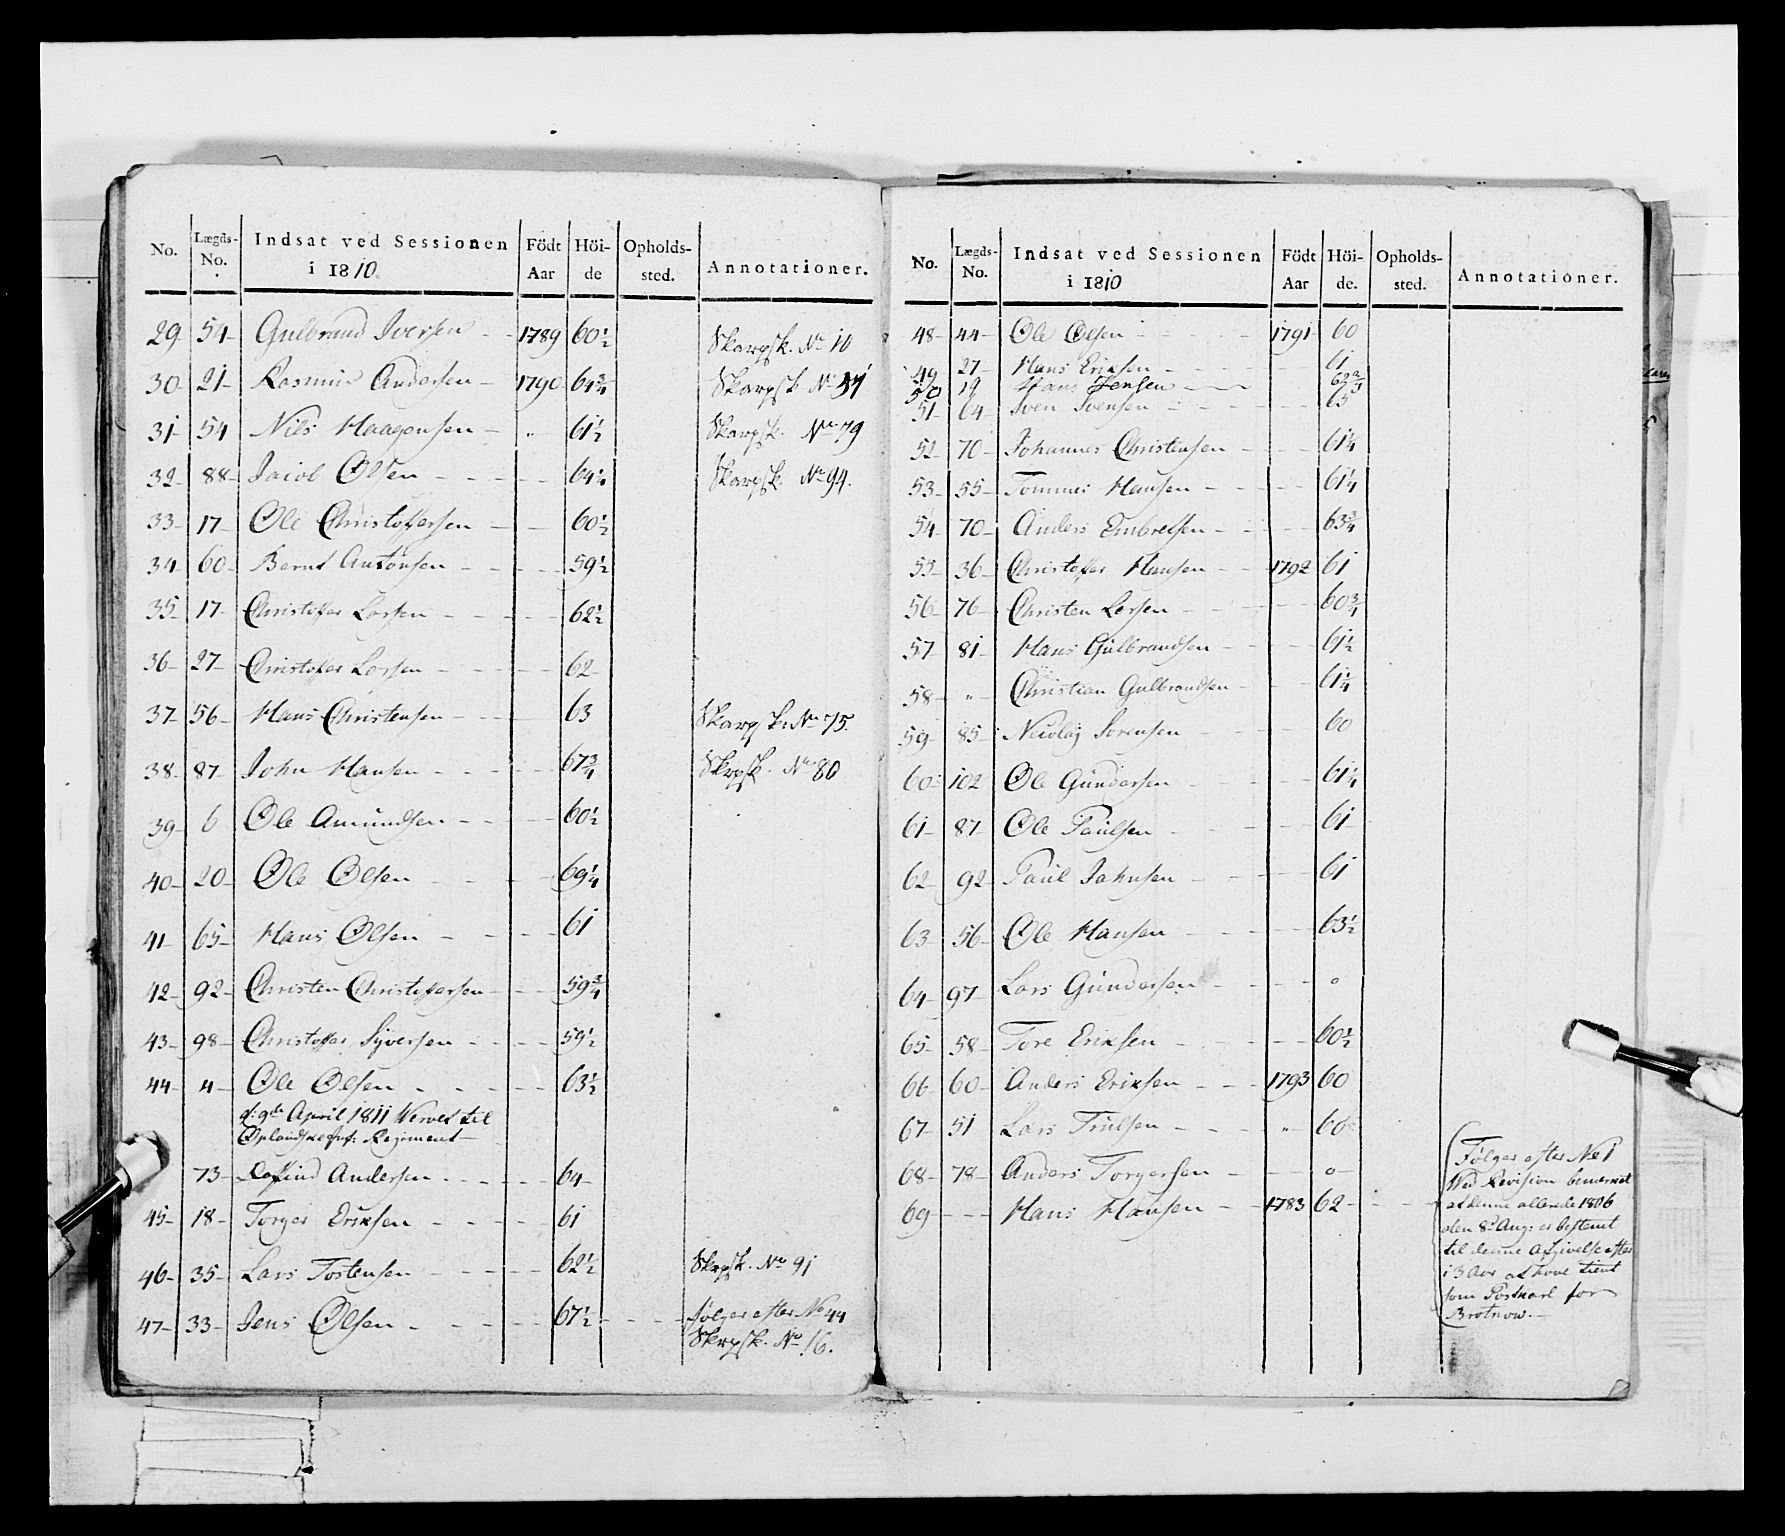 No. Lægds-No. Indsat ved Sessionen i 1810 Födt Aar Höi-de Opholds-sted. Annotationer.
29 54 Gulbrand Iversen 1789 60½ Skarpsk. No 10
30 21 Rasmus Andersen 1790 64¾ Skarpsk No 37
31 54 Nils Haagensen " 61½ Skarpsk. No 79
32 88 Jacob Olsen 64¼ Skarpsk. No 94.
33 17 Ole Christoffersen 60½
34 60 Bernt Antonsen 59½
35 17 Christofer Larsen 62½
36 27 Christofer Larsen 62
37 56 Hans Christensen 63 Skarpsk. No 75.
38 87 John Hansen 67¾ Skrpsk. No 80
39 6 Ole Amundsen 60½
40 20 Ole Olsen 69¼
41 65 Hans Olsen 61
42 92 Christen Christofersen 59¾
43 98 Christoffer Syversen 59½
44 4 Ole Olsen 63½
d: 9de April 1811 Hervet til
Oplandske Inf: Regiment
73 Andersen 64
45 18 Torger Eriksen 61
46 35 Lars Tostensen 62½ Skrpsk. No 91
47 33 Jens Olsen 67½ følger efter No 44
Skrpsk. No 16.
No. Lægds-No. Indsat ved Sessionen i 1810 Födt Aar Höi-de. Opholds-sted. Annotationer.
48 44 Ole Olsen 1791 60
49 27 Hans Eriksen 61
50 19 Hans Jensen 62¾
51 64 Sven Svensen 65
52 70 Johannes Christensen 61¼
53 55 Tommes Hansen 61¼
54 70 Anders Embretsen 63¾
55 36 Christoffer Hansen 1792 61
56 76 Christen Larsen 60¾
57 81 Hans Gulbrandsen 61½
58 " Christian Gulbrandsen 61¼
59 85 Nicolaj Sorensen 60
60 102 Ole Gundersen 61¼
61 87 Ole Paulsen 61
62 92 Paul Johnsen 61
63 56 Ole Hansen 63½
64 97 Lars Gundersen o
65 58 Tore Eriksen 60½
66 60 Anders Eriksen 1793 60
67 51 Lars Trulsen " 60
68 78 Anders Torgersen o
69 Hans Hansen 1783 62
Følger efter No 1
Ved Revision bemærket
at denne allerede 1806
den 8d Aug: er bestemt
til denne Afgivelse efter
i 3 Aar at have tient
som Postkarl for